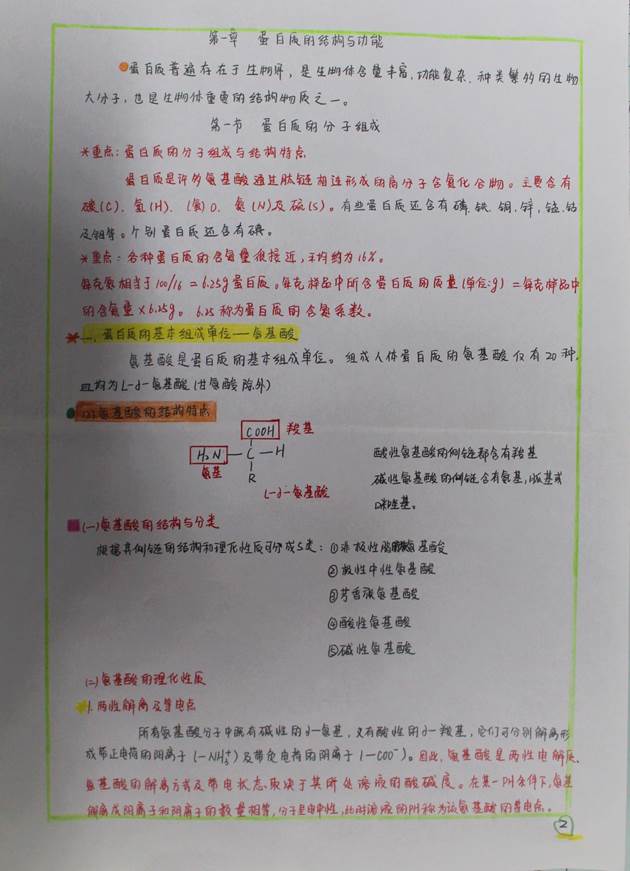 第一章 蛋白质的结构与功能
蛋白质普遍存在于生物界，是生物体含量丰富、功能复杂、种类繁多的生物
大分子，也是生物体重要的结构物质之一。
第一节 蛋白质的分子组成
*重点：蛋白质的分子组成与结构特点
蛋白质是许多氨基酸通过肽链相连形成的高分子含氮化合物。主要含有
碳(C)、氢(H)、(氧)O、氮(N)及硫(S)。有些蛋白质还含有磷、铁、铜、锌、锰、钴
及钼等。个别蛋白质还含有碘。
*重点：各种蛋白质的含氮量很接近，平均约为16%。
每克氮相当于100/16=6.25g蛋白质。每克样品中所含蛋白质的质量(单位:g)=每克样品中
的含氮量×6.25g。6.25称为蛋白质的含氮系数。
*一、蛋白质的基本组成单位——氨基酸
氨基酸是蛋白质的基本组成单位。组成人体蛋白质的氨基酸仅有20种，
且均为L-α-氨基酸(甘氨酸除外)
氨基酸的结构特点
COOH 羧基
H₂N—C—H
氨基
R
L-α-氨基酸
酸性氨基酸的侧链都含有羧基
碱性氨基酸的侧链含有氨基，胍基或
咪唑基。
(一)氨基酸的结构与分类
根据其侧链的结构和理化性质可分成5类：①非极性脂肪族氨基酸
②极性中性氨基酸
③芳香族氨基酸
④酸性氨基酸
⑤碱性氨基酸
(二)氨基酸的理化性质
1.两性解离及等电点
所有氨基酸分子中既有碱性的α-氨基，又有酸性的α-羧基，它们可分别解离形
成带正电荷的阳离子(-NH₃⁺)及带负电荷的阴离子(-COO⁻)。因此，氨基酸是两性电解质。
氨基酸的解离方式及带电状态取决于其所处溶液的酸碱度。在某一PH条件下，氨基
解离成阳离子和阴离子的数量相等，分子呈电中性，此时溶液的PH称为该氨基酸的等电点。
2